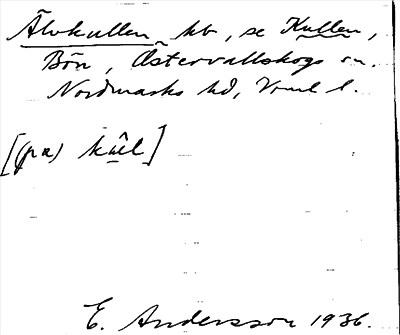 Älvkullen hb, se Kullen,
Bön, Östervallskogs sn.
Nordmarks hd, Vrml l.
[(pa) kul]
E. Andersson 1936.